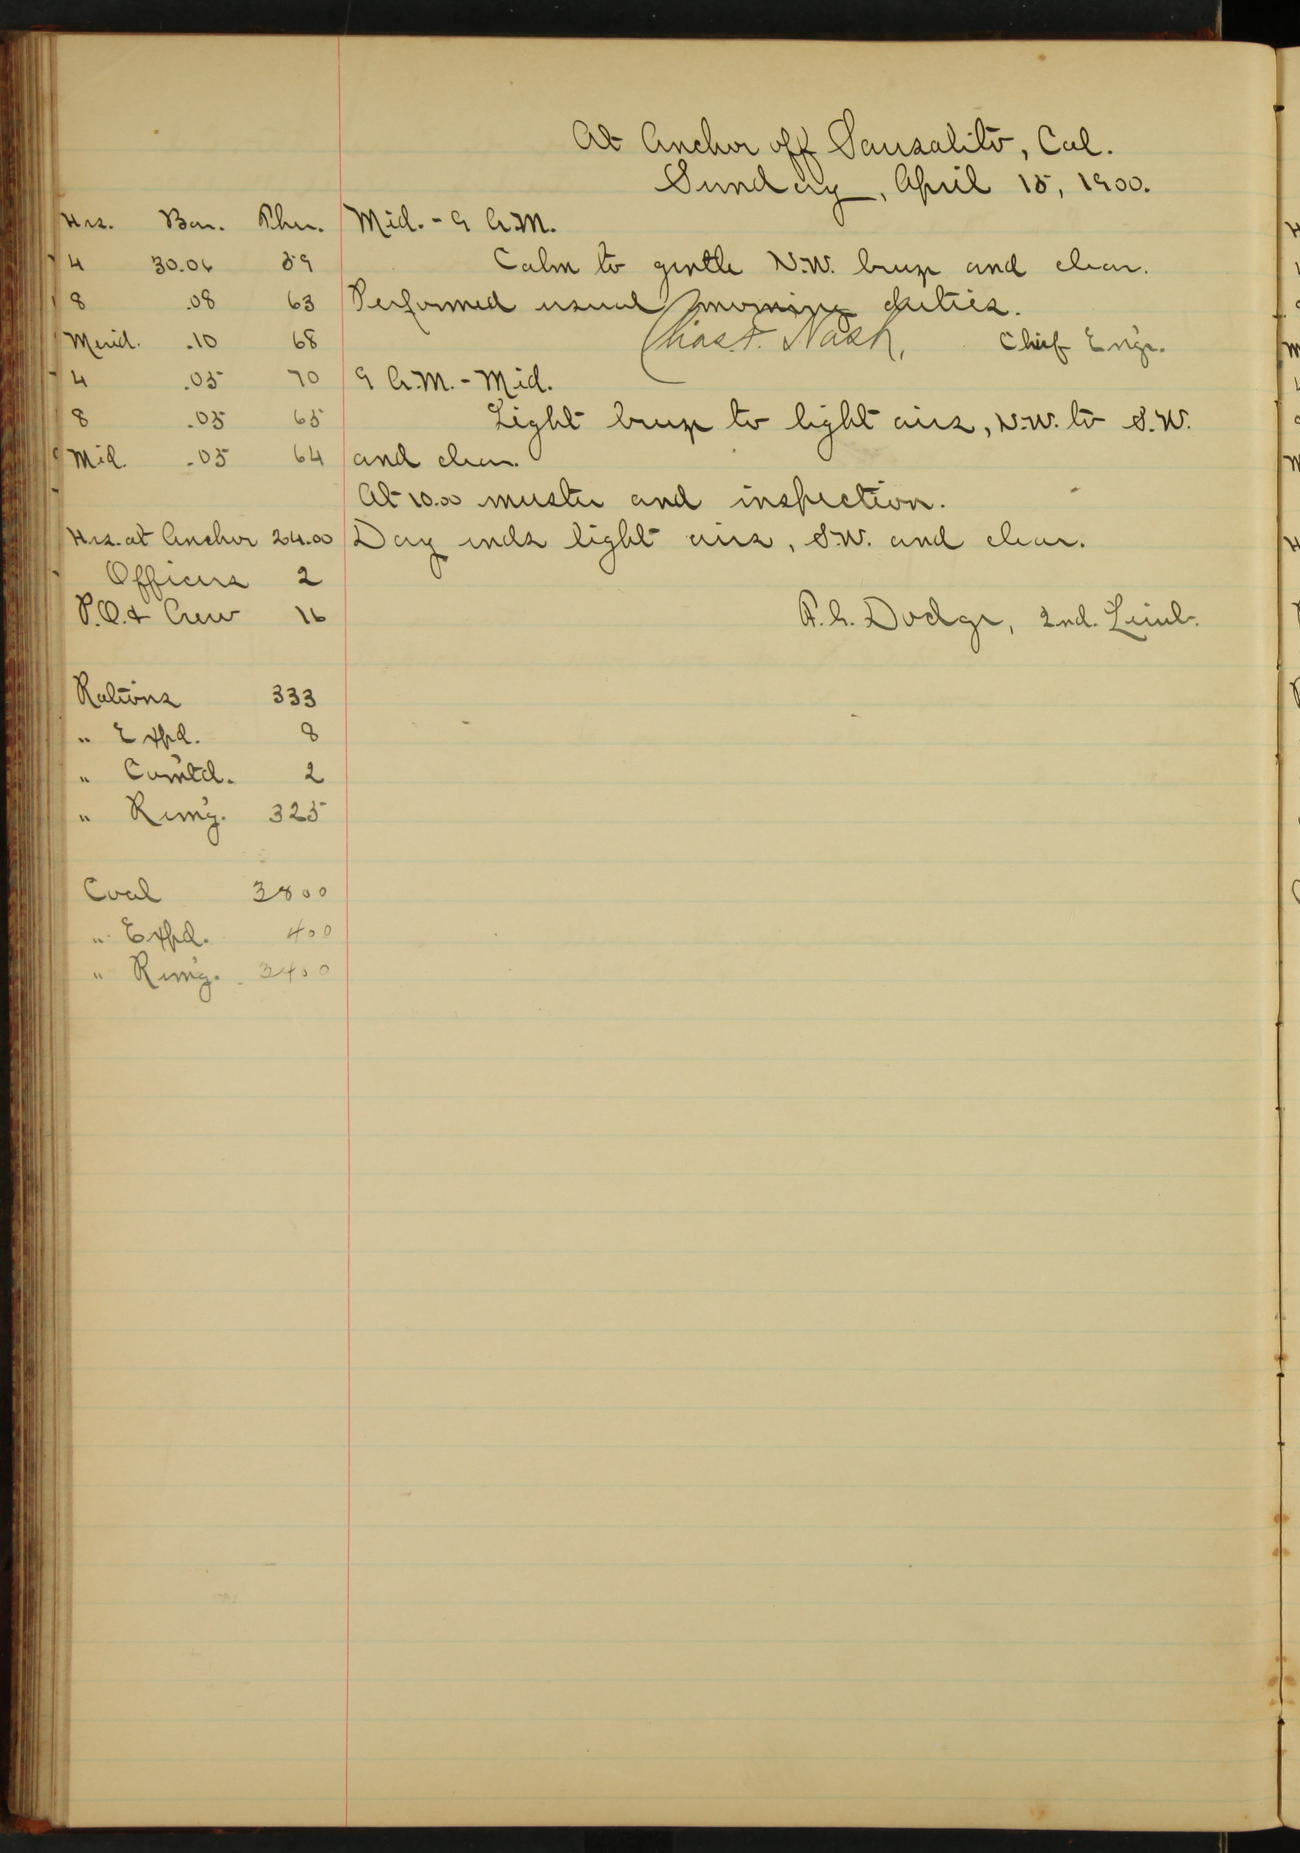 At Anchor off Sausalito, Cal.
Sunday, April 15, 1900.
Hrs. Bar. Ther.
4 30.06 59
8 .08 63
Merid. .10 68
4 .05 70
8 .05 65
Mid. .05 64
Hrs. at Anchor 24.00
Officers 2
P.O. & Crew 16
Rations 333
" Expd. 8
" Com'td. 2
" Rem'g. 325
Coal 3800
" Expd. 400
" Rem'g. 3400
Mid. - 9 A.M.
Calm to gentle N.W. breeze and clear.
Performed usual morning duties.
Chas. F. Nash, Chief Eng'r.
9 A.M. - Mid.
Light breeze to light airs, N.W. to S.W.
and clear.
At 10.00 muster and inspection.
Day ends light airs, S.W. and clear.
Dodge, 2nd. Lieut.